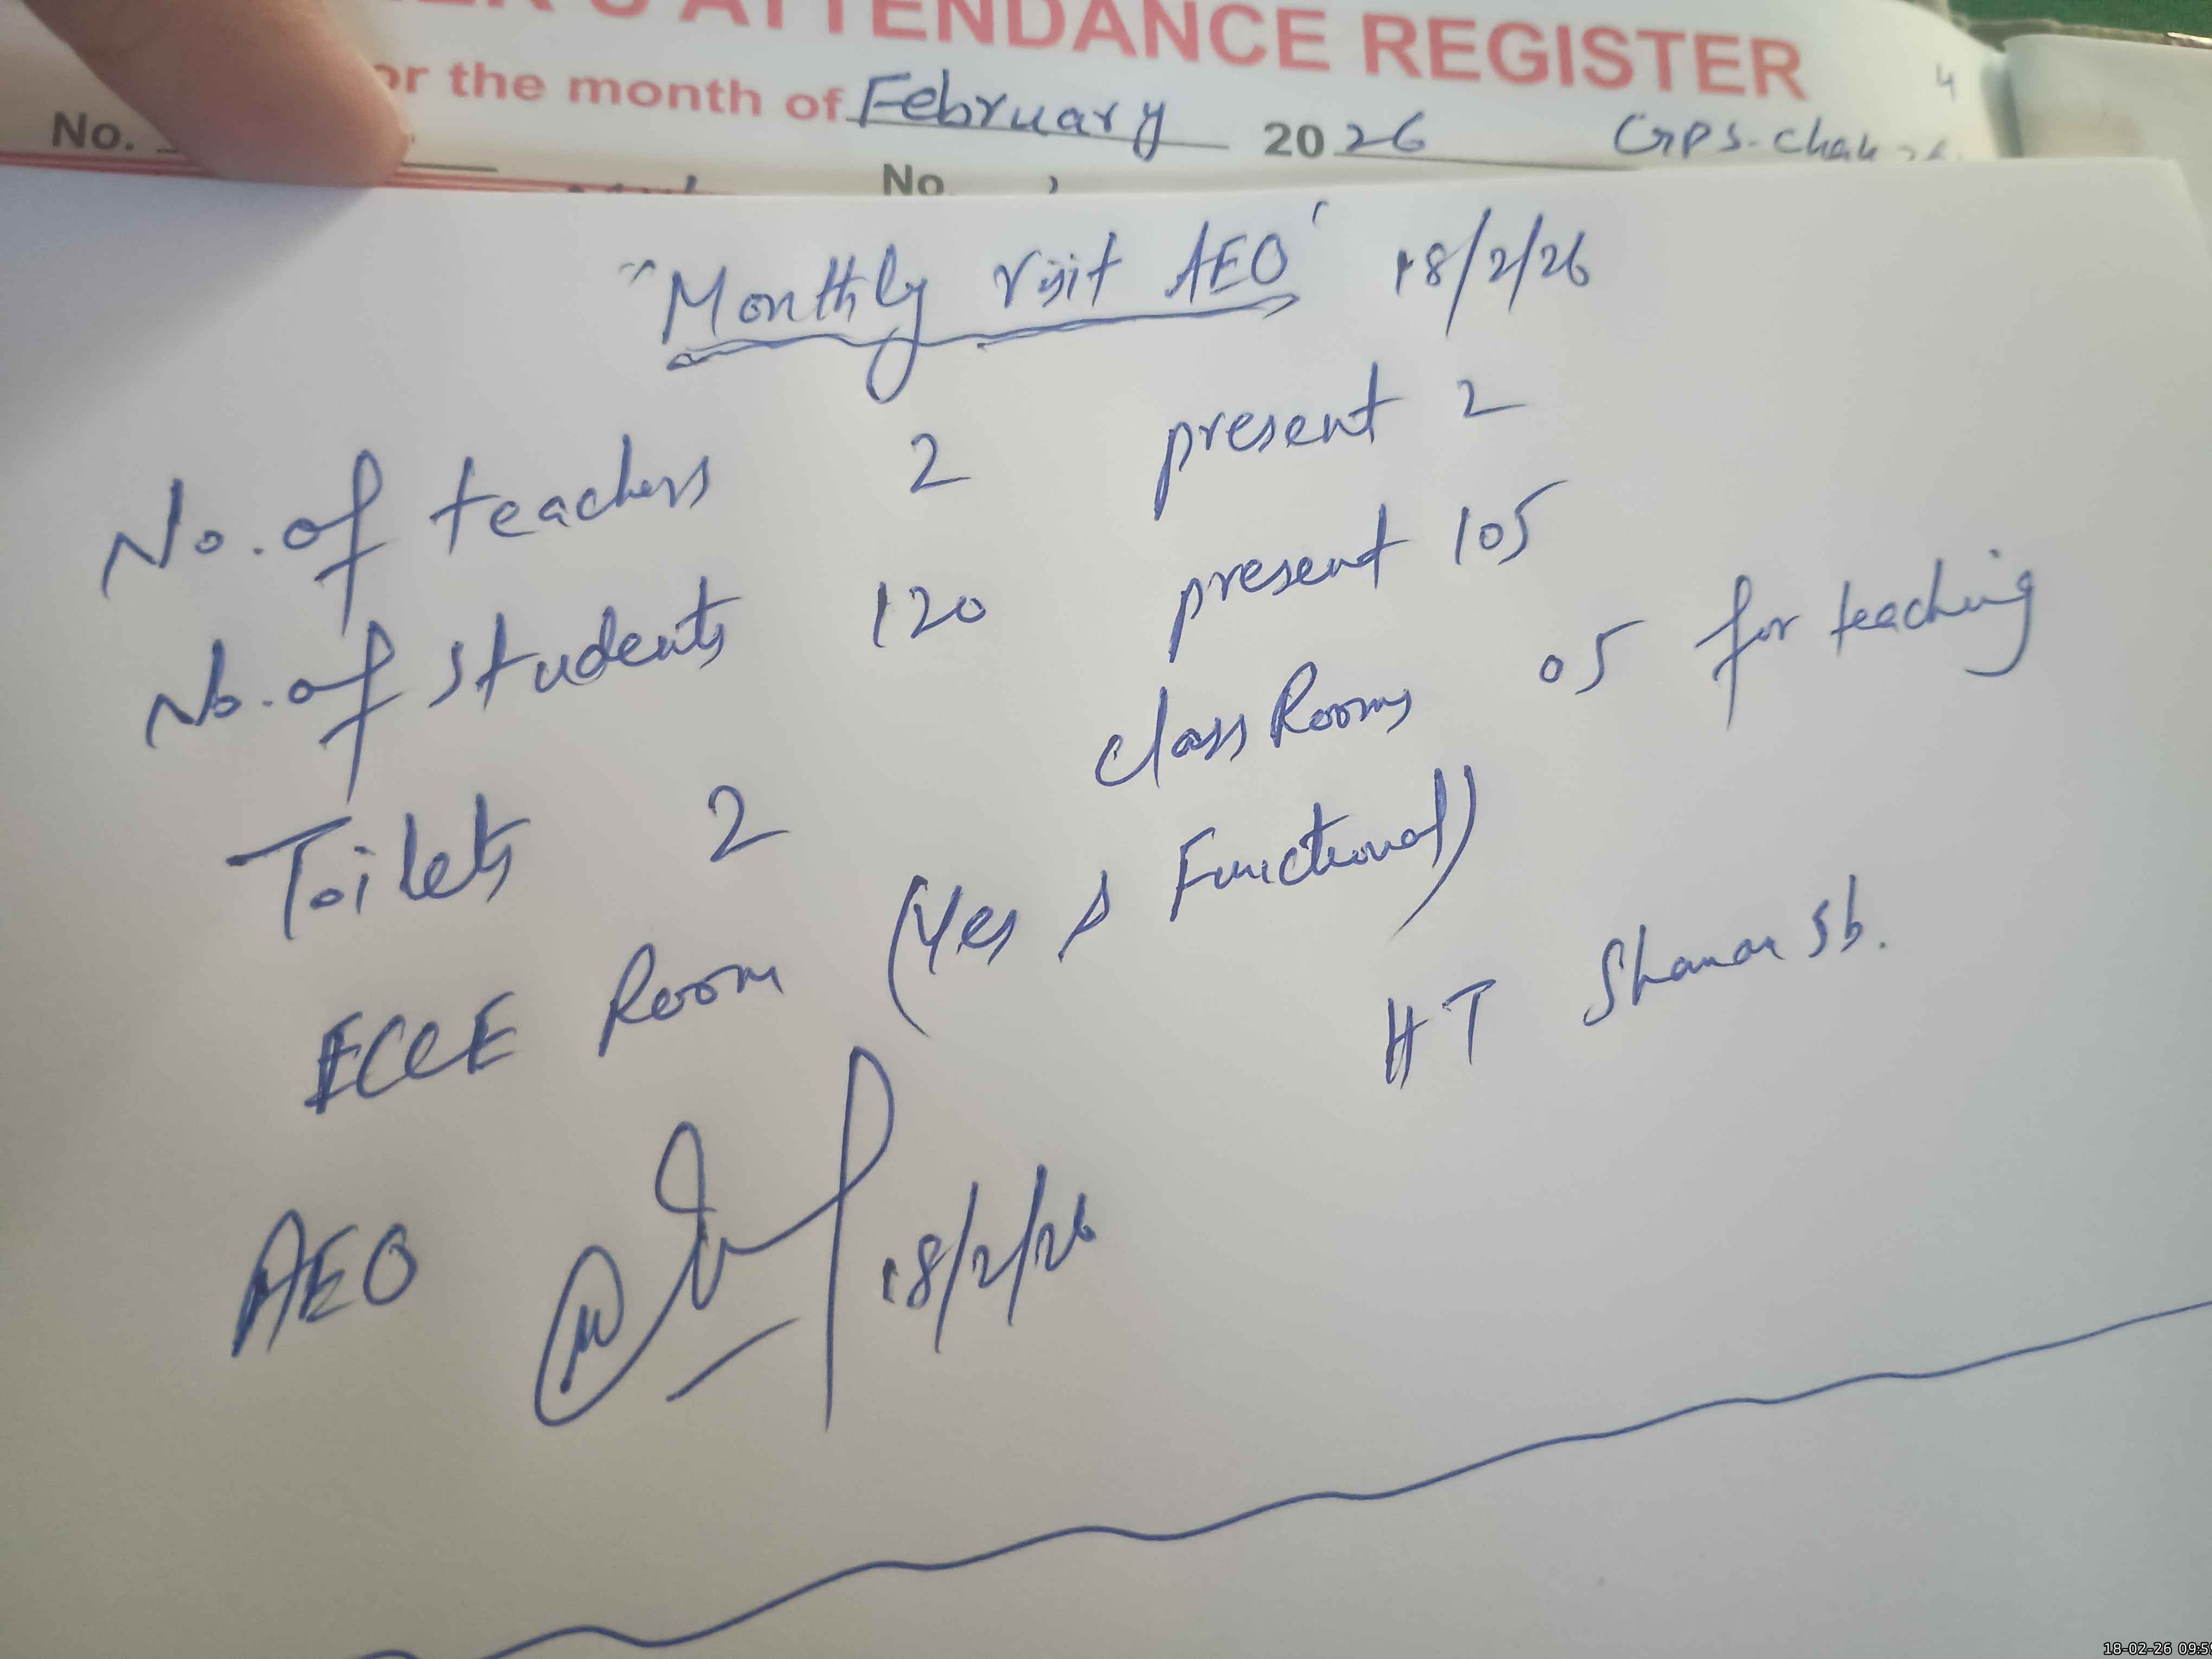 ER'S ATTENDANCE REGISTER
or the month of February 2026 GPS-Chak 4
No. No
"Monthly Visit AEO" 18/2/26
No. of teachers 2 present 2
No. of students 120 present 105
Toilets 2 class Rooms 05 for teaching
ECCE Room (Yes & Functional)
HT Sb.
AEO 18/2/26
18-02-26 09:5